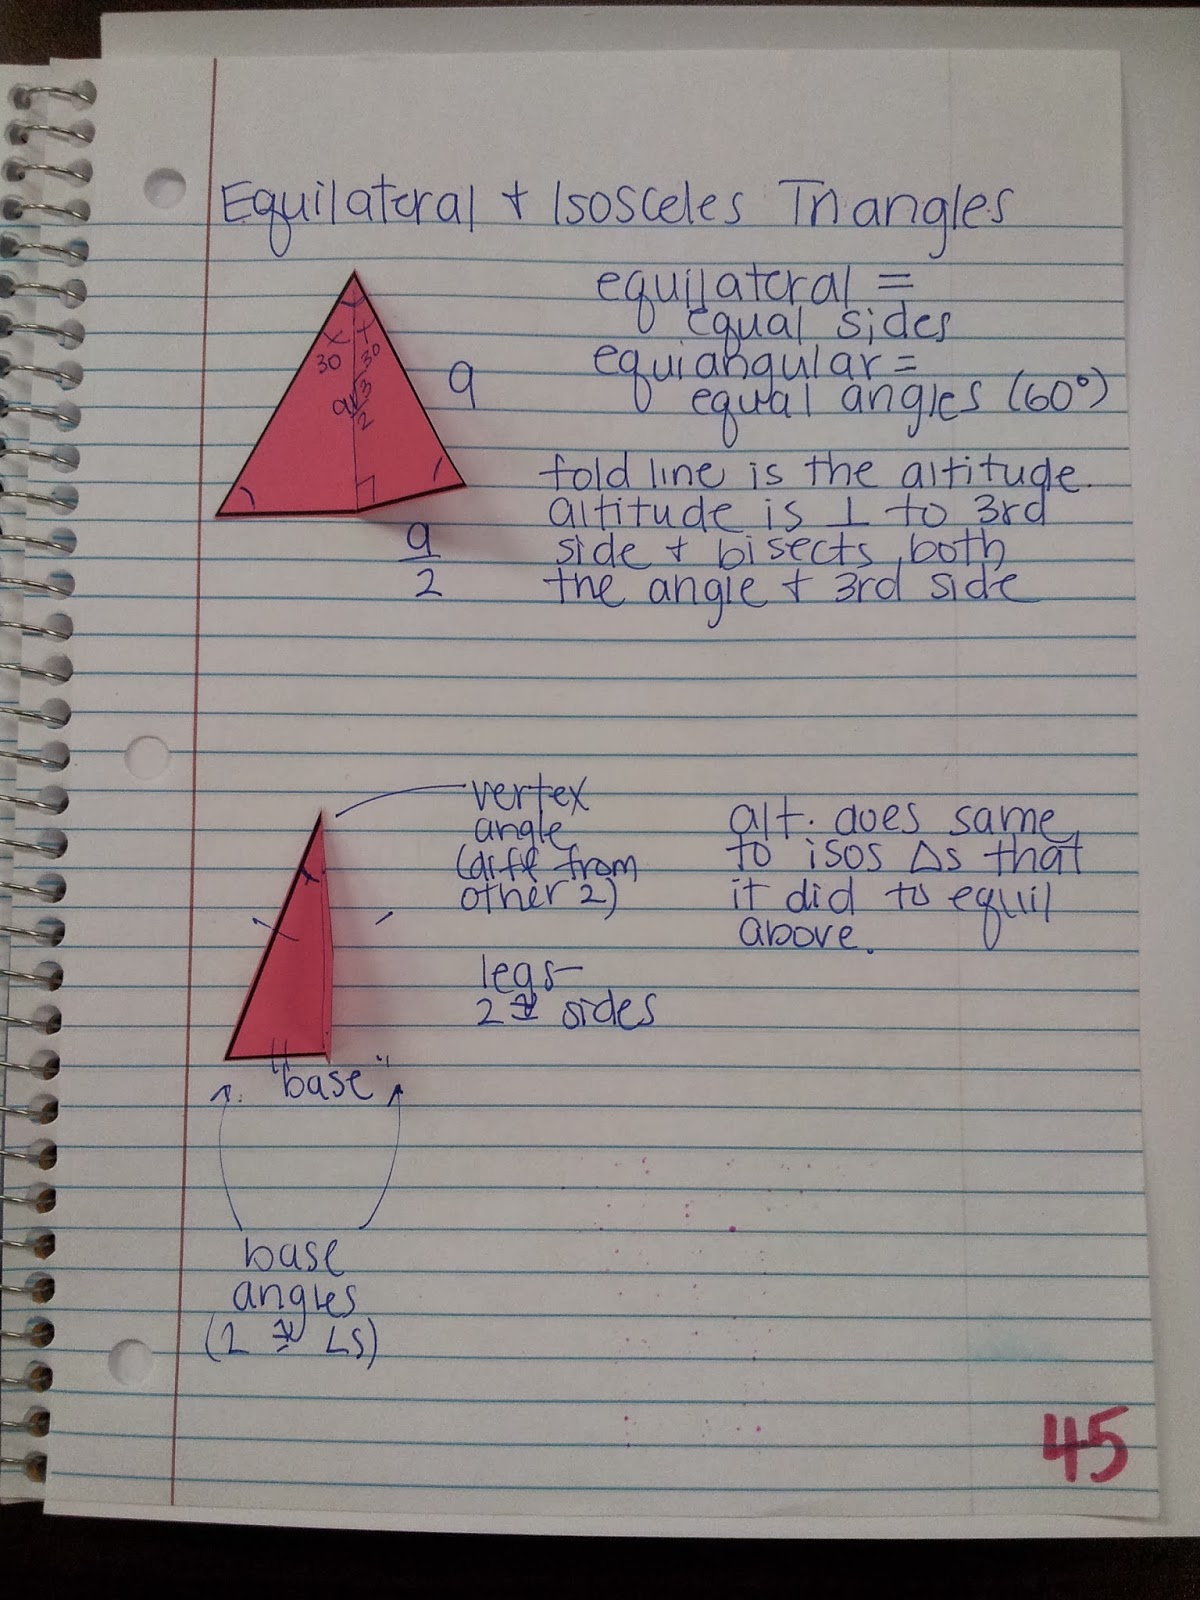 Equilateral + Isosceles Triangles
equilateral =
equal sides
equiangular =
equal angles (60°)
30
30
a√3
2
a
a
2
fold line is the altitude.
altitude is ⊥ to 3rd
side + bisects both
the angle + 3rd side
vertex
angle
(diff from
other 2)
legs–
2 ≅ sides
"base"
base
angles
(2 ≅ ∠s)
alt. does same
to isos △s that
it did to equil
above.
45